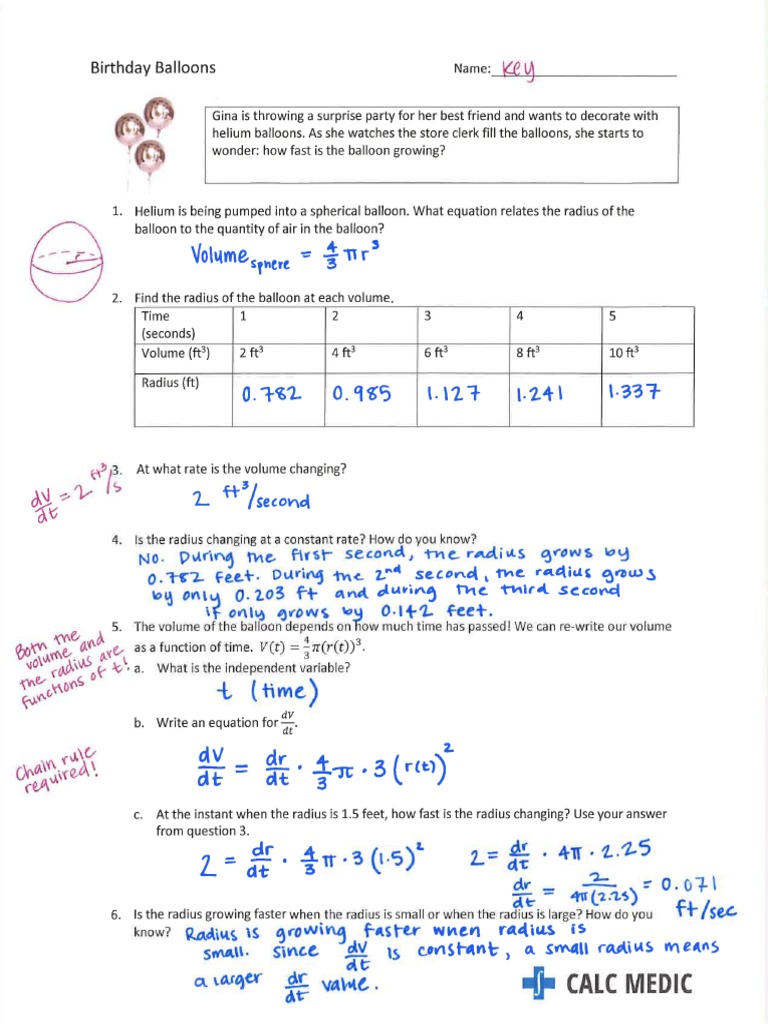 Birthday Balloons
Name: Key
Gina is throwing a surprise party for her best friend and wants to decorate with
helium balloons. As she watches the store clerk fill the balloons, she starts to
wonder: how fast is the balloon growing?
1. Helium is being pumped into a spherical balloon. What equation relates the radius of the
balloon to the quantity of air in the balloon?
Volume sphere = 4/3 πr³
r
2. Find the radius of the balloon at each volume.
Time (seconds) 1 2 3 4 5
Volume (ft³) 2 ft³ 4 ft³ 6 ft³ 8 ft³ 10 ft³
Radius (ft) 0.782 0.985 1.127 1.241 1.337
3. At what rate is the volume changing?
dV/dt = 2 ft³/s
2 ft³/second
4. Is the radius changing at a constant rate? How do you know?
No. During the first second, the radius grows by
0.782 feet. During the 2nd second, the radius grows
by only 0.203 ft and during the third second
if only grows by 0.142 feet.
5. The volume of the balloon depends on how much time has passed! We can re-write our volume
as a function of time. V(t) = 4/3 π(r(t))³.
Both the
volume and
the radius are
functions of t!
a. What is the independent variable?
t (time)
b. Write an equation for dV/dt.
dV/dt = dr/dt · 4/3 π · 3 (r(t))²
Chain rule
required!
c. At the instant when the radius is 1.5 feet, how fast is the radius changing? Use your answer
from question 3.
2 = dr/dt · 4/3 π · 3 (1.5)²
2 = dr/dt · 4π · 2.25
dr/dt = 2/4π(2.25) = 0.071
ft/sec
6. Is the radius growing faster when the radius is small or when the radius is large? How do you
know? Radius is growing faster when radius is
small. Since dV/dt is constant, a small radius means
a larger dr/dt value.
CALC MEDIC